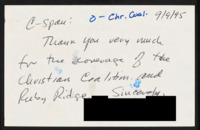 C-span: O-Chr. Coal. 9/9/95
Thank you very much
for the coverage of the
Christian Coalition and
Ruby Ridge. Sincerely,